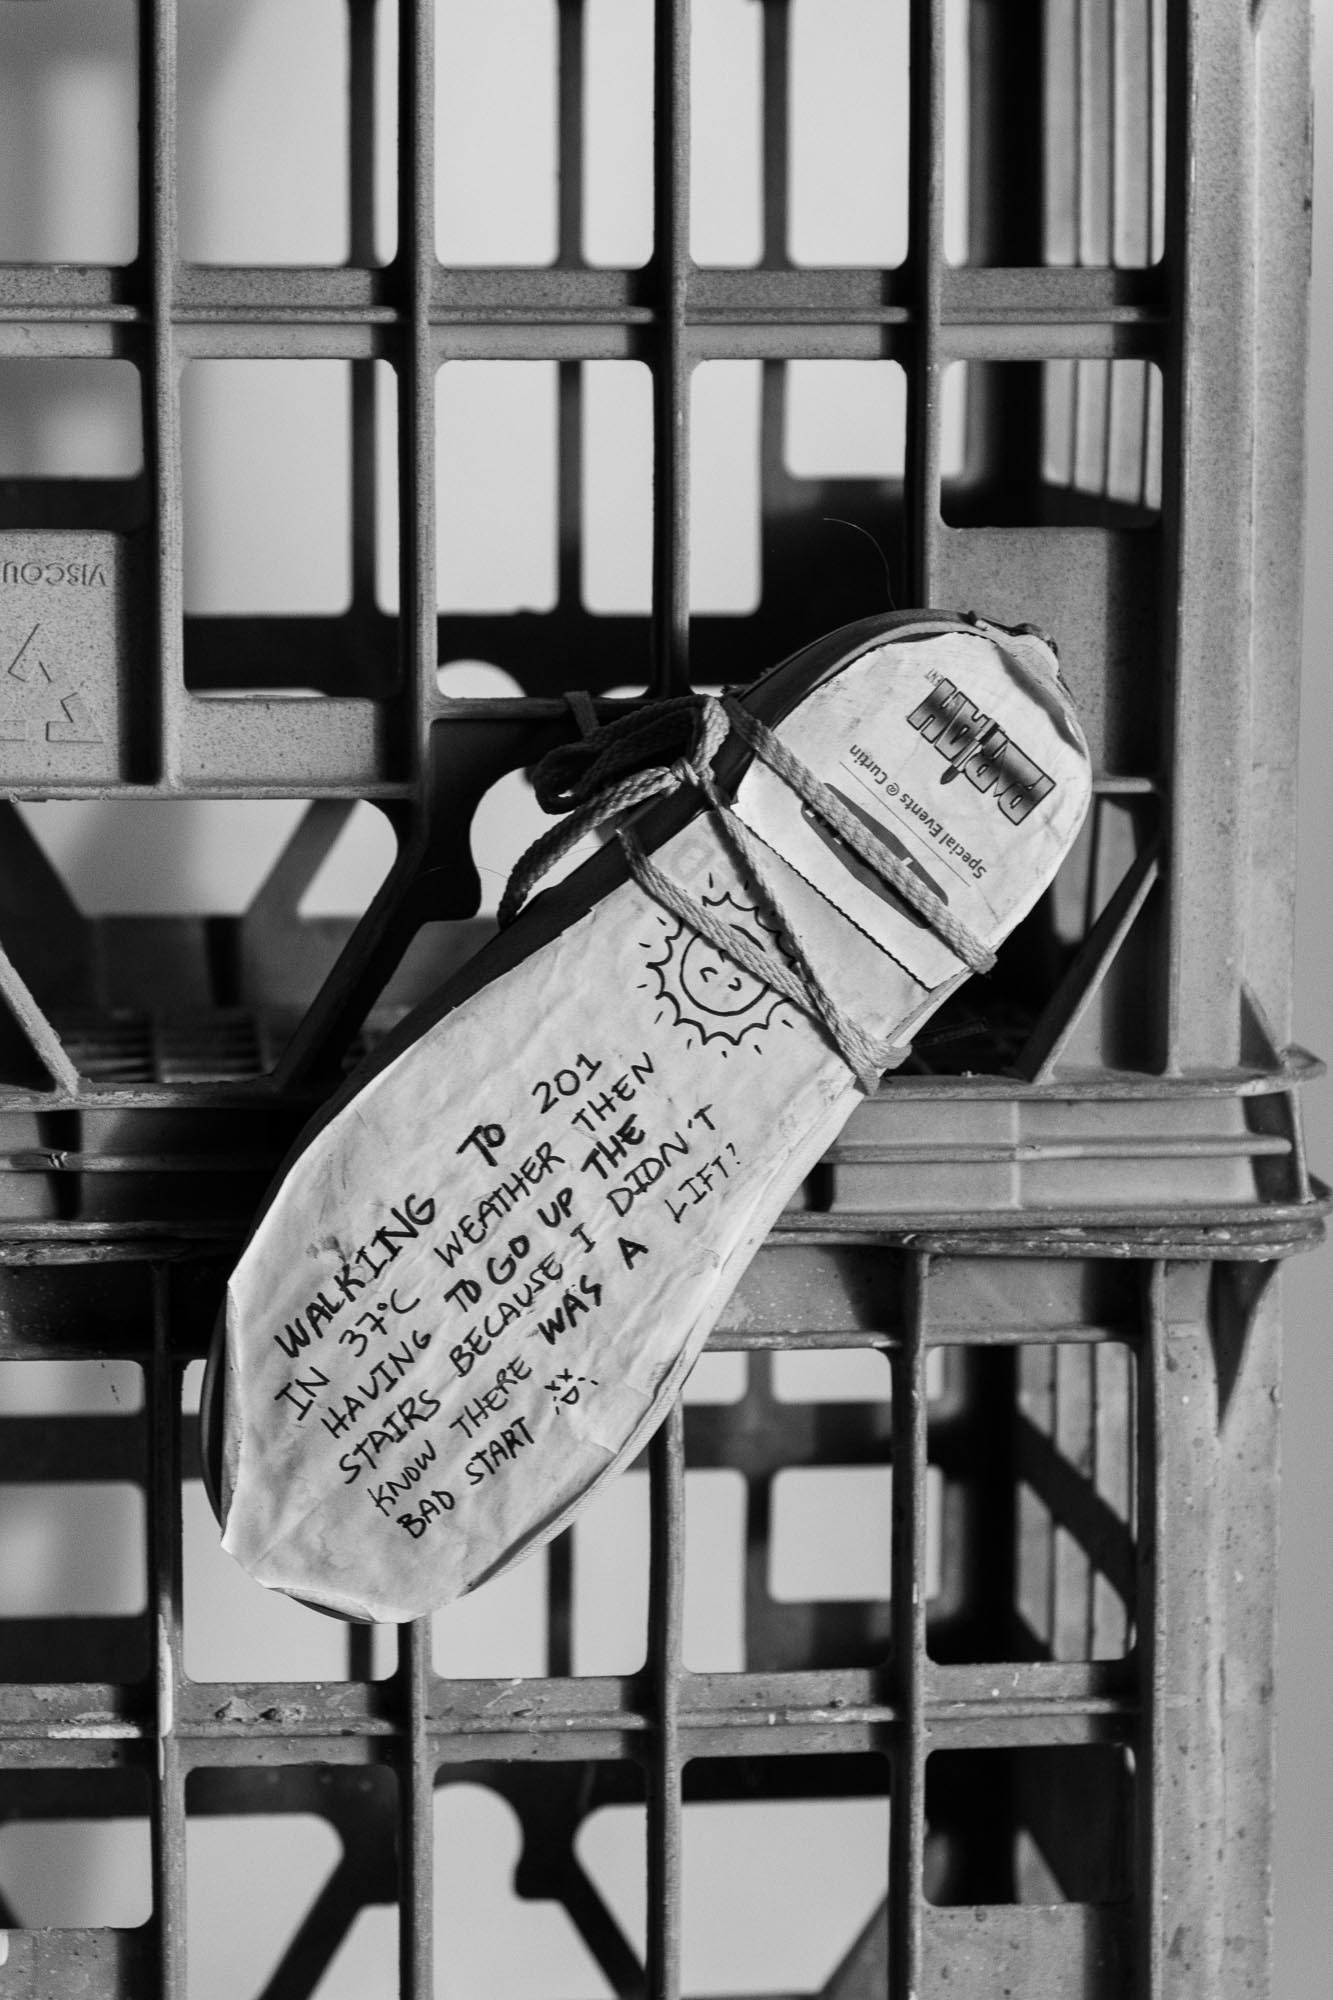 WALKIING TO 201
IN 37°C WEATHER THEN
HAVING TO GO UP THE
STAIRS BECAUSE I DIDN'T
KNOW THERE WAS A LIFT?
BAD START
Special Events @ Curtin